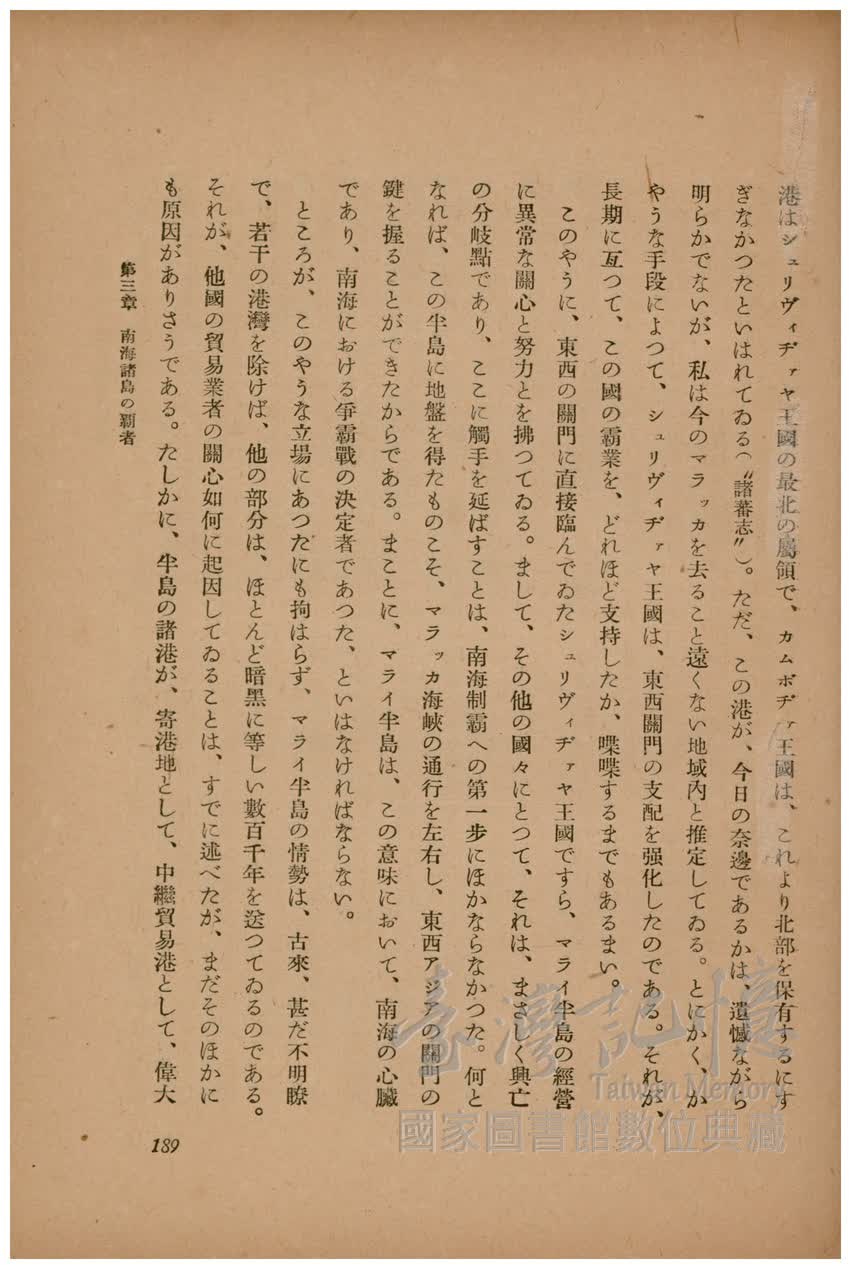 港はシュリヴィヂァヤ王國の最北の屬領で、カムボヂァ王國は、これより北部を保有するにす
ぎなかつたといはれてゐる(〝諸蕃志〟)。ただ、この港が、今日の奈邊であるかは、遺憾ながら
明らかでないが、私は今のマラッカを去ること遠くない地域內と推定してゐる。とにかく、か
やうな手段によつて、シュリヴィヂァヤ王國は、東西關門の支配を强化したのである。それが、
長期に亙つて、この國の霸業を、どれほど支持したか、喋喋するまでもあるまい。
このやうに、東西の關門に直接臨んでゐたシュリヴィヂァヤ王國ですら、マライ半島の經營
に異常な關心と努力とを拂つてゐる。まして、その他の國々にとつて、それは、まさしく興亡
の分岐點であり、ここに觸手を延ばすことは、南海制霸への第一步にほかならなかつた。何と
なれば、この半島に地盤を得たものこそ、マラッカ海峽の通行を左右し、東西アジアの關門の
鍵を握ることができたからである。まことに、マライ半島は、この意味において、南海の心臟
であり、南海における爭霸戰の決定者であつた、といはなければならない。
ところが、このやうな立場にあつたにも拘はらず、マライ半島の情勢は、古來、甚だ不明瞭
で、若干の港灣を除けば、他の部分は、ほとんど暗黑に等しい數百千年を送つてゐるのである。
それが、他國の貿易業者の關心如何に起因してゐることは、すでに述べたが、まだそのほかに
も原因がありさうである。たしかに、半島の諸港が、寄港地として、中繼貿易港として、偉大
第三章 南海諸島の覇者
189
臺灣記憶
Taiwan Memory
國家圖書館數位典藏